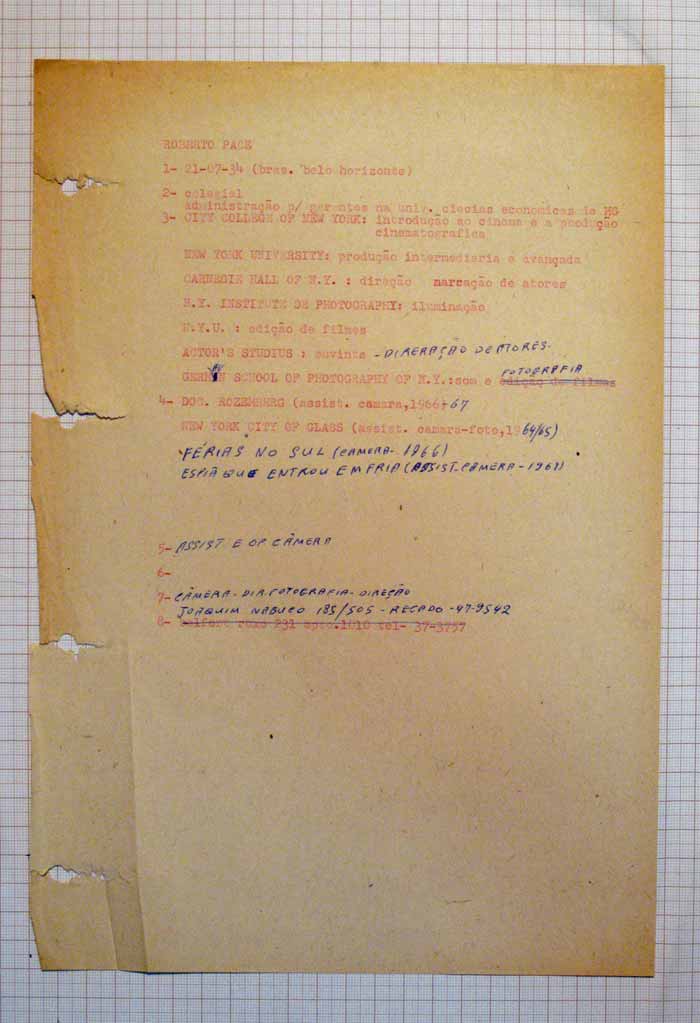 ROBERTO PACE
1- 21-07-34 (bras. belo horizonte)
2- colegial
administração p/ gerentes na univ. ciecias economicas de MG
3- CITY COLLEGE OF NEW YORK: introdução ao cinema e a produção
cinematografica
NEW YORK UNIVERSITY: produção intermediaria e avançada
CARNEGIE HALL OF N.Y. : direção marcação de atores
N.Y. INSTITUTE OF PHOTOGRAPHY: iluminação
N.Y.U. : edição de filmes
ACTOR'S STUDIUS : ouvinte - DIRERAÇÃO DE ATORES.
FOTOGRAFIA
GERMAN SCHOOL OF PHOTOGRAPHY OF N.Y.:som e edição de filmes
4- DOC. ROZEMBERG (assist. camara,1966-67
NEW YORK CITY OF GLASS (assist. camara-foto,1964/65)
FÉRIAS NO SUL (CAMERA- 1966)
ESPIÃ QUE ENTROU EM FRIA (ASSIST. CÂMERA - 1967)
5- ASSIST E OP CÂMERA
6-
7- CÂMERA - DIR. FOTOGRAFIA - DIREÇÃO
JOAQUIM NABUCO 185/505 - RECADO - 47-9542
8- belfort roxo 231 apto.1010 tel- 37-3757